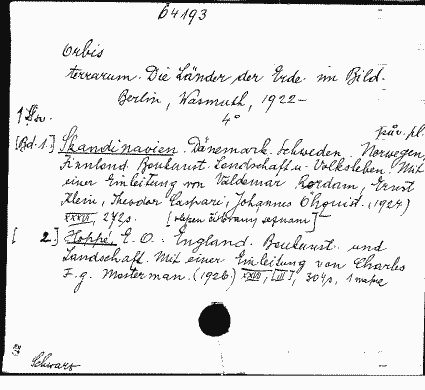 64193
Orbis
terrarum. Die Länder der Erde im Bild.
Berlin, Wasmuth, 1922-
4°
[Bd. 1.] Skandinavien. Dänemark. Schweden. Norwegen,
Finnland. Baukunst. Landschaft u. Volksleben. Mit
einer Einleitung von Valdemar Rördam, Ernst
Klein, Theodor Caspari, Johannes Öhquist. (1924)
XXXVI, 272 s.
[2.] Hoppé, E. O.: England. Baukunst und
Landschaft. Mit einer Einleitung von Charles
F. g. Masterman. (1926) XXVII, [III], 304 s, 1 mapa
Schwarz